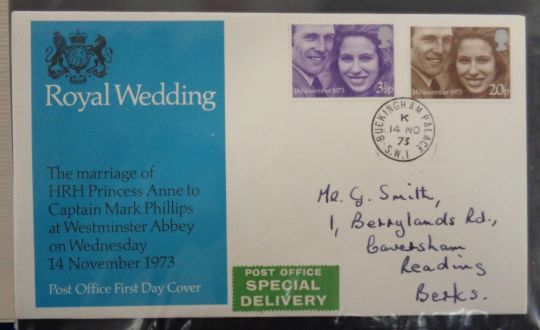 14 November 1973
3½p
14 November 1973
20p
Royal Wedding
BUCKINGHAM PALACE
K
14 NO
73
S.W.1
The marriage of
HRH Princess Anne to
Captain Mark Phillips
at Westminster Abbey
on Wednesday
14 November 1973
Post Office First Day Cover
Mr. G. Smith,
1, Berrylands Rd.,
Caversham
Reading
Berks.
POST OFFICE
SPECIAL
DELIVERY